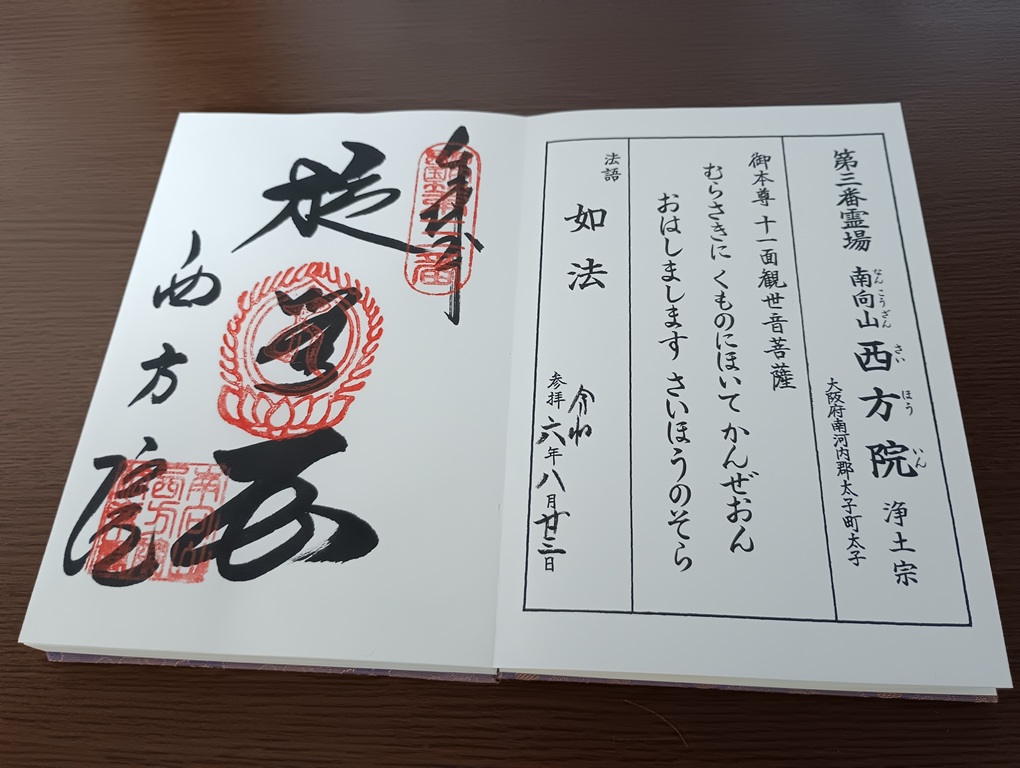 第三番霊場 南向山 西方院 浄土宗
なんこうざん さいほういん
大阪府南河内郡太子町太子
御本尊 十一面観世音菩薩
むらさきに くものにほいて かんぜおん
おはしまします さいほうのそら
法語
如法
参拝 令和六年八月廿三日
奉拝
西方院